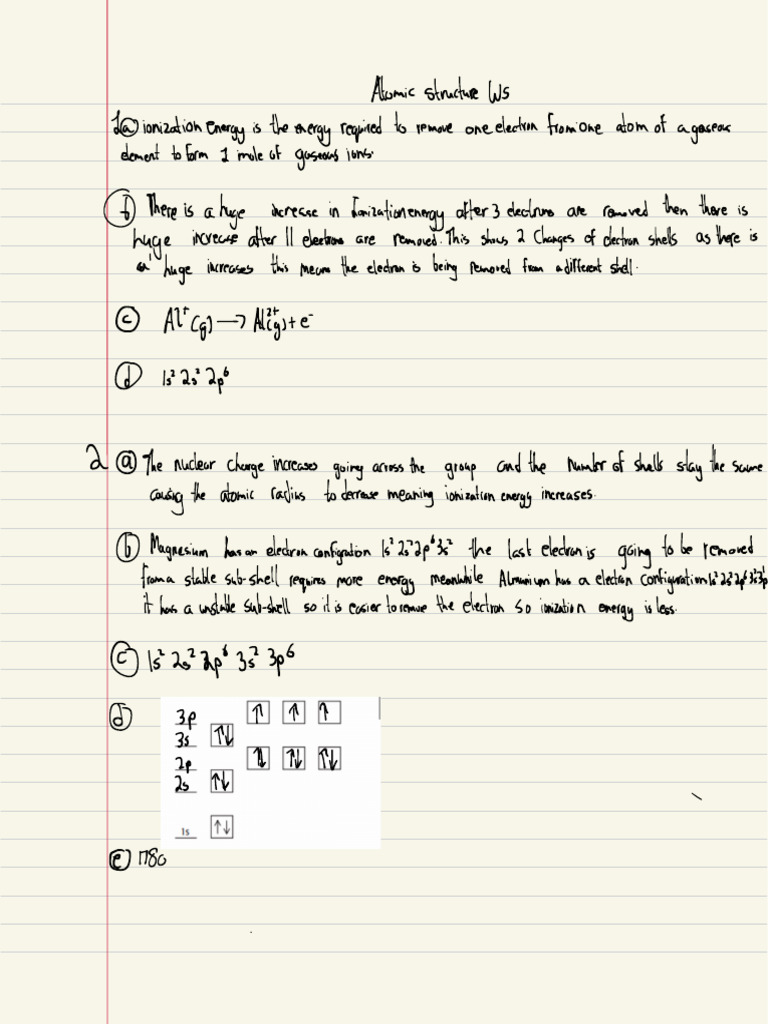 Atomic structure WS
1 a ionization energy is the energy required to remove one electron from one atom of a gaseous
element to form 1 mole of gaseous ions.
b There is a huge increase in Ionization energy after 3 electrons are removed then there is
huge increase after 11 electrons are removed. This shows 2 changes of electron shells as there is
a huge increases this means the electron is being removed from a different shell.
c Al⁺(g) → Al²⁺(g) + e⁻
d 1s² 2s² 2p⁶
2 a The nuclear charge increases going across the group and the number of shells stay the same
causing the atomic radius to decrease meaning ionization energy increases.
b Magnesium has an electron configration 1s² 2s² 2p⁶ 3s² the last electron is going to be removed
from a stable sub-shell requires more energy meanwhile Alumunium has a electron configuration 1s² 2s² 2p⁶ 3s² 3p¹
it has a unstable sub-shell so it is easier to remove the electron so ionization energy is less.
c 1s² 2s² 2p⁶ 3s² 3p⁶
d 3p ↑ ↑ ↑
3s ↑↓
2p ↑↓ ↑↓ ↑↓
2s ↑↓
1s ↑↓
e 1780